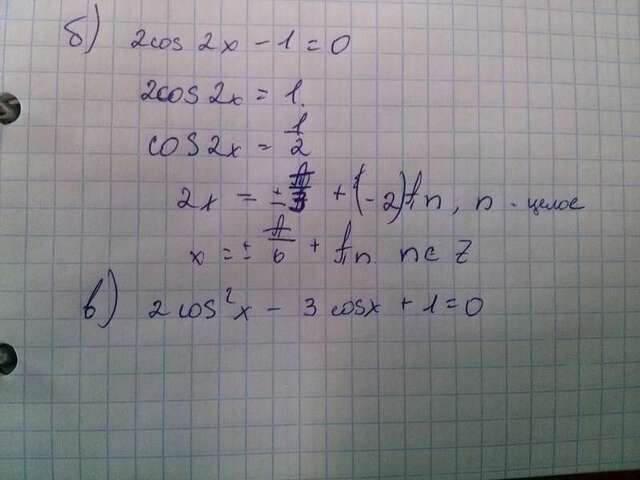 б) 2cos 2x - 1 = 0
2cos 2x = 1.
cos 2x = 1/2
2x = ± π/3 + (-2)πn, n - целое
x = ± π/6 + πn n ∈ Z
в) 2 cos²x - 3 cosx + 1 = 0